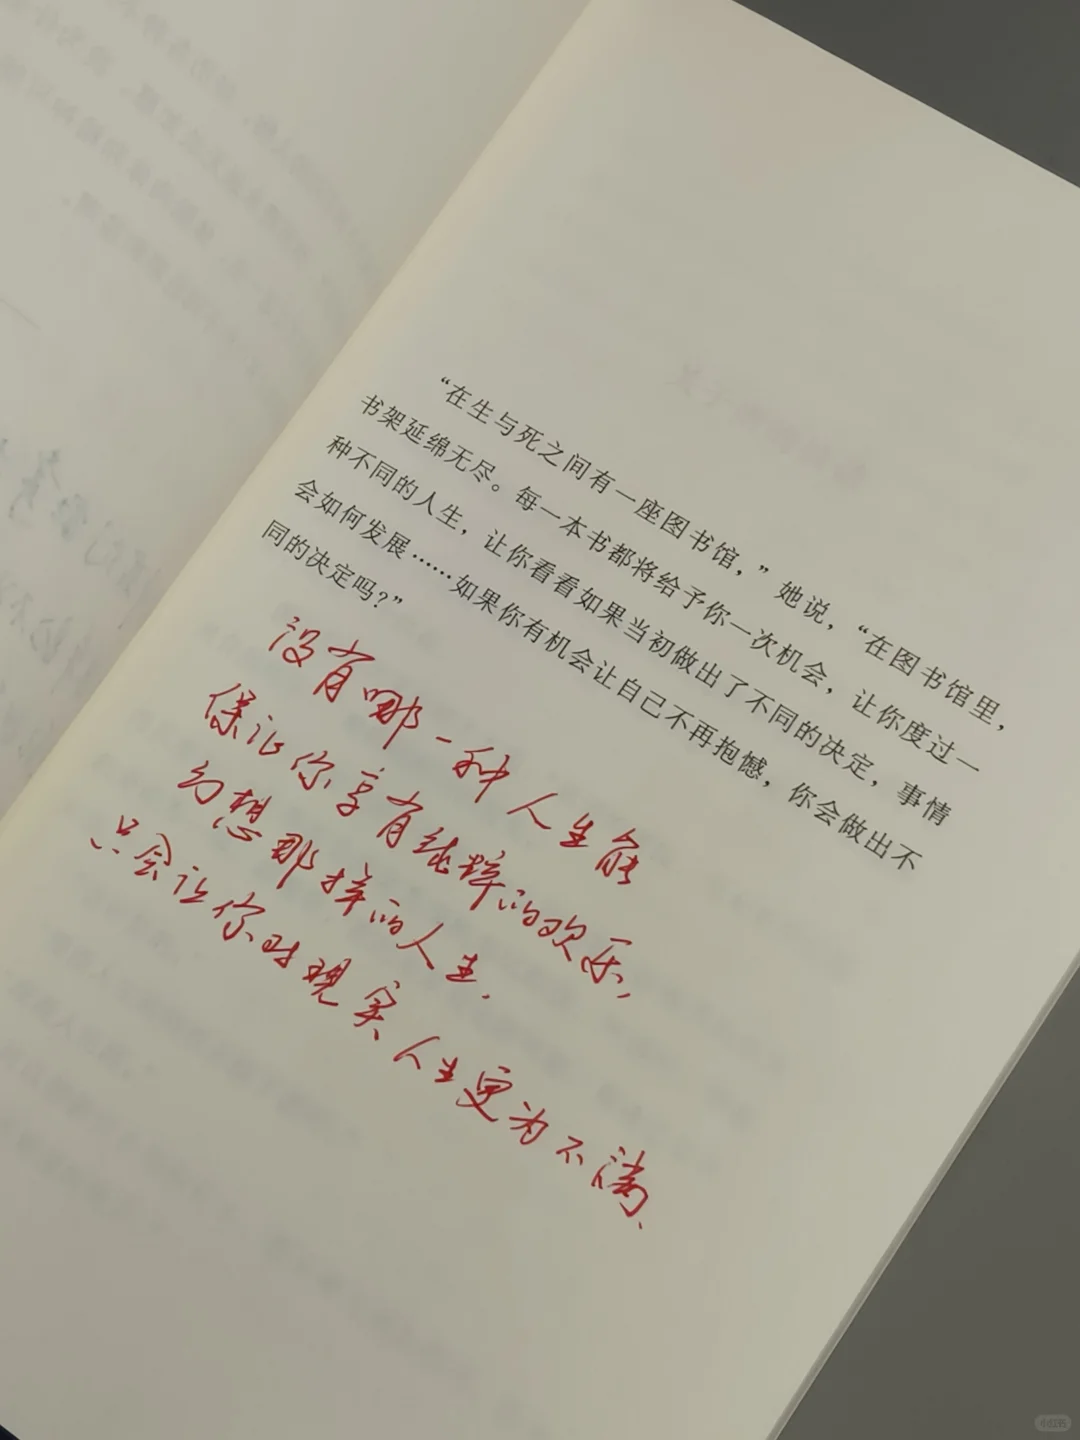 “在生与死之间有一座图书馆，”她说，“在图书馆里，
书架延绵无尽。每一本书都将给予你一次机会，让你度过一
种不同的人生，让你看看如果当初做出了不同的决定，事情
会如何发展……如果你有机会让自己不再抱憾，你会做出不
同的决定吗？”
没有哪一种人生能
保让你享有纯粹的欢乐，
幻想那样的人生.
只会让你对现实人生更为不满、
小红书